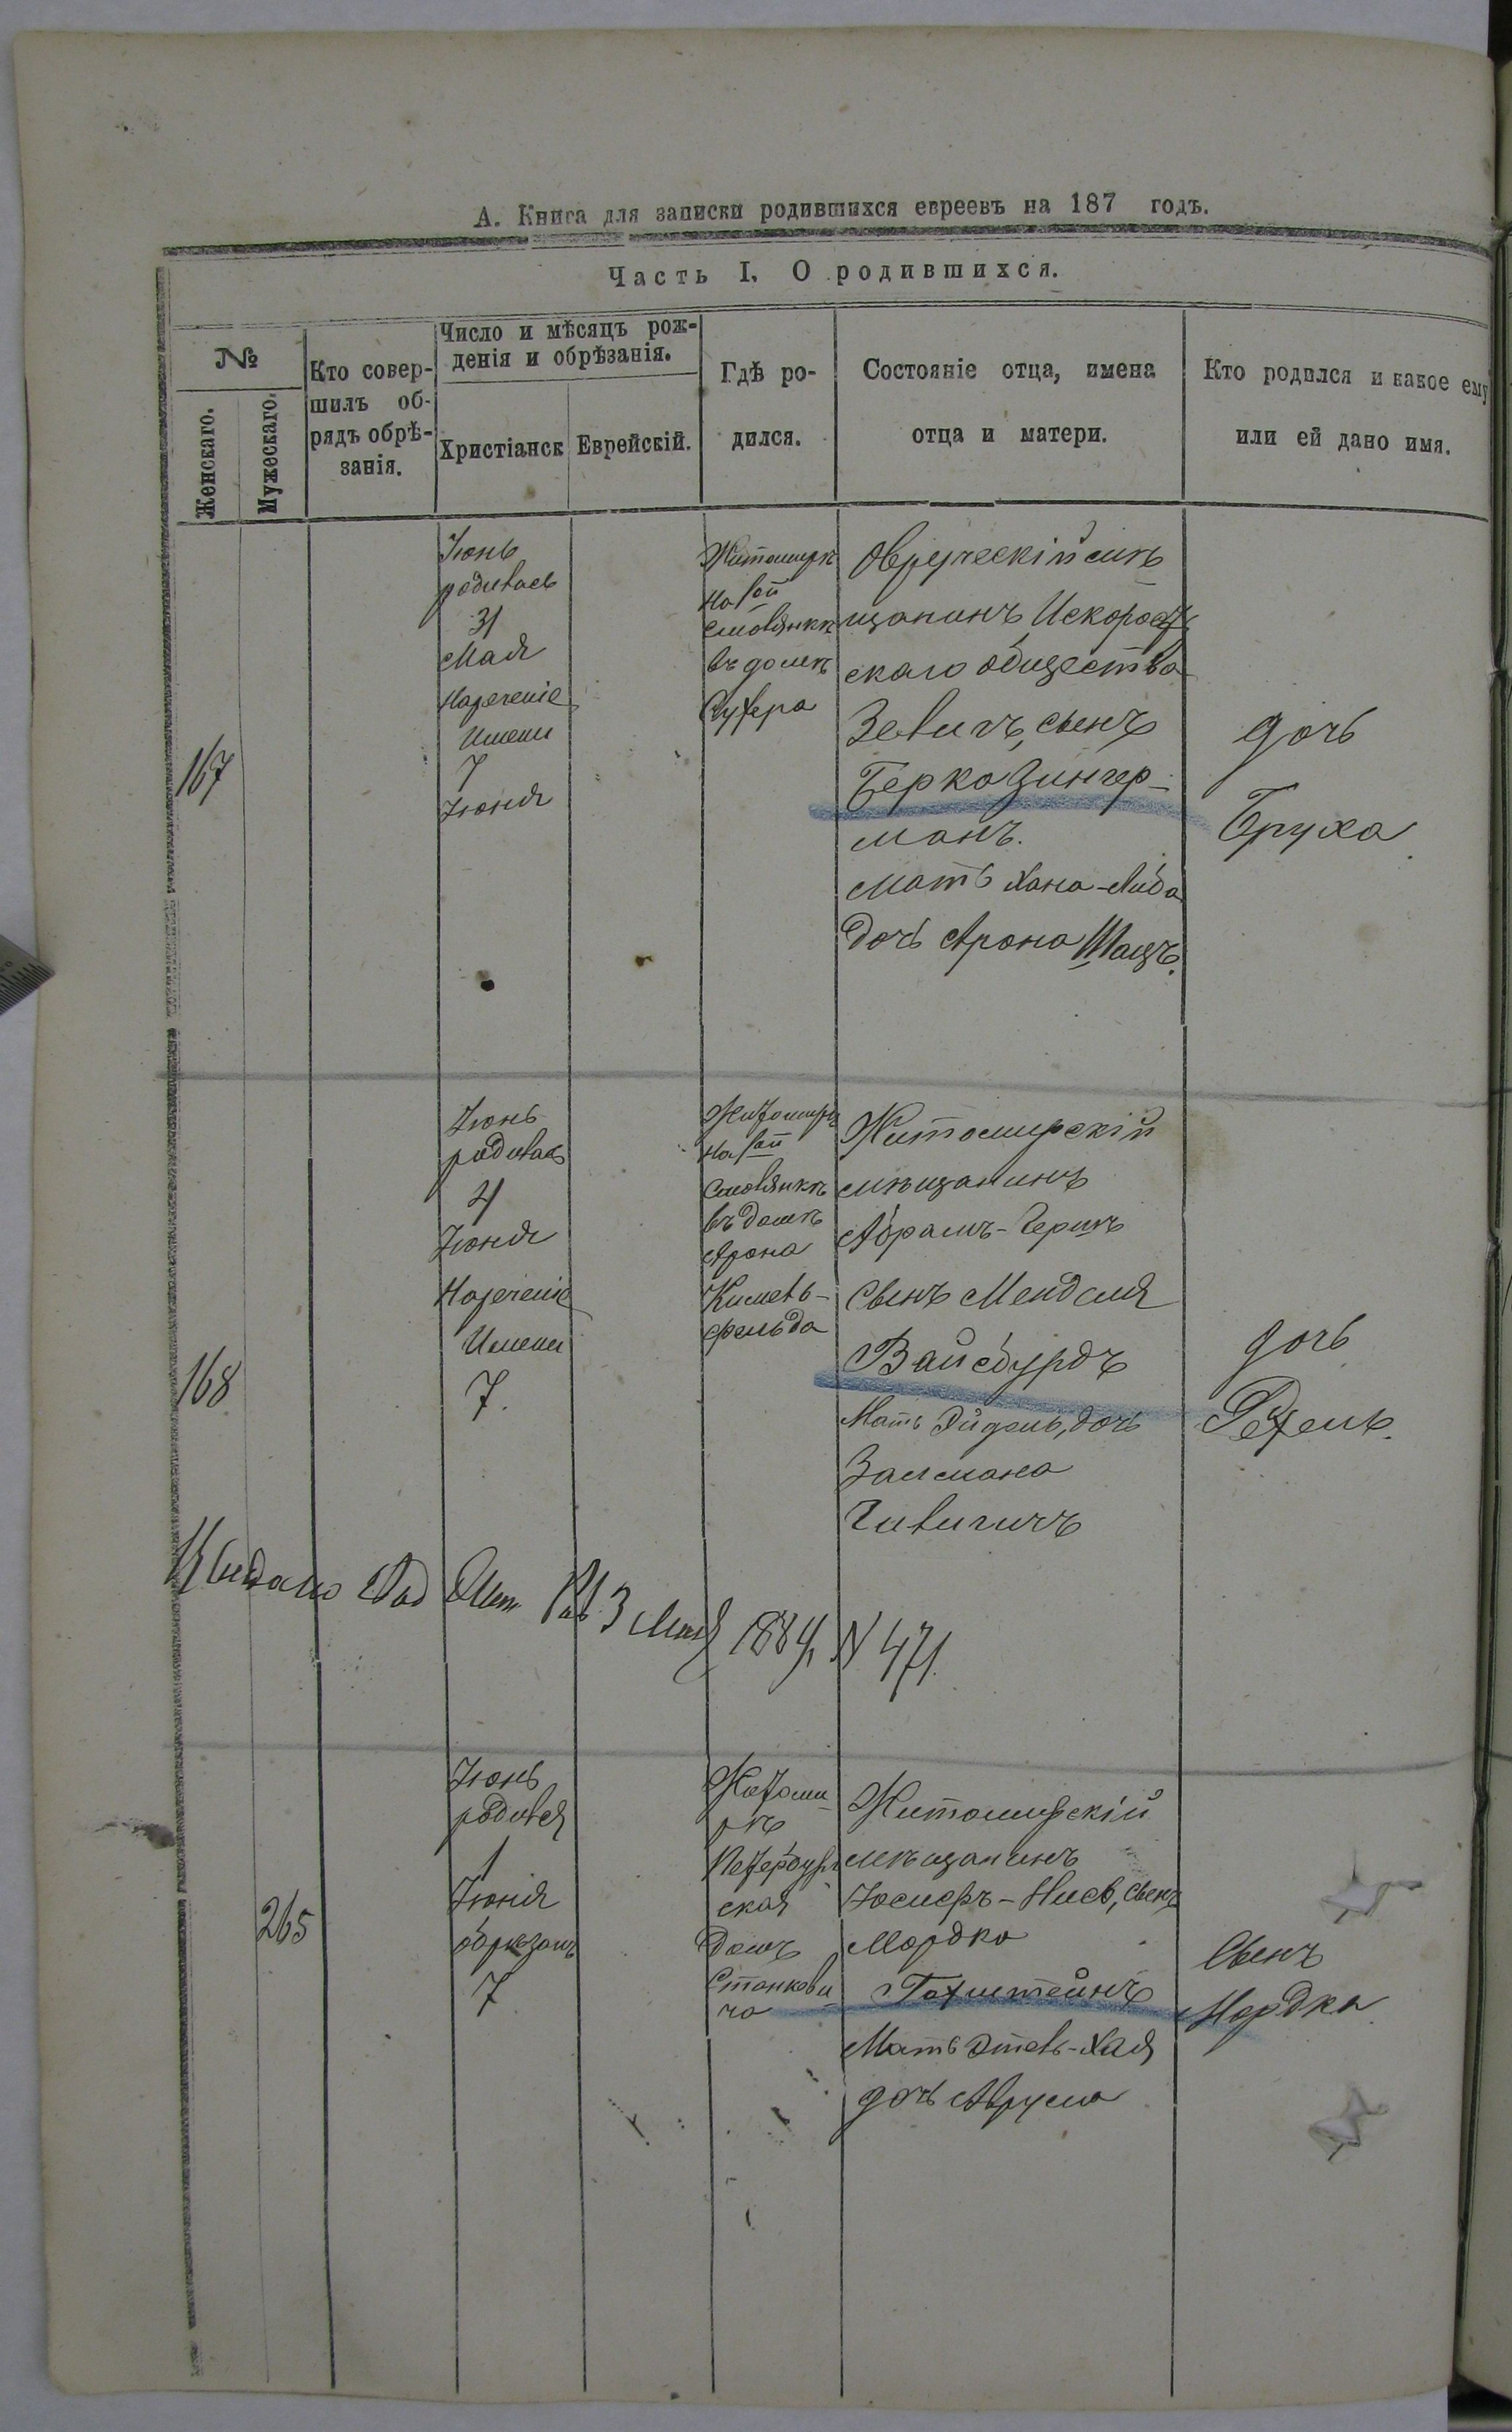 А. Книга для записки родившихся евреевъ на 187 годъ.
Часть I. О родившихся.
№
Женскаго.
Мужескаго.
Кто совер-
шилъ об-
рядъ обрѣ-
занія.
Число и мѣсяцъ рож-
денія и обрѣзанія.
Христіанск
Еврейскій.
Гдѣ ро-
дился.
Состояніе отца, имена
отца и матери.
Кто родился и какое ему
или ей дано имя.
167
Іюнь
родилась
31
Мая
Нареченіе
Имени
7
Іюня
Житомирѣ
на
въ домѣ
Овруческій мѣ
щанинъ Искорост
скаго общества
сынъ
Берко Зингер-
манъ.
Мать Хана-Либа
дочь Арона Шацъ.
дочь
Бруха
168
Іюнь
родилась
4
Іюня
Нареченіе
Имени
7.
Житомирѣ
на
въ домѣ
Арона
фельда
Житомирскій
мѣщанинъ
Абрамъ-Гершъ
сынъ Менделя
Вайсбурдъ
Мать Эйдель, дочь
Залмана
дочь
Рехель.
Выдано Раб 3 Мая 1884 N 471
265
Іюнь
родился
1
Іюня
обрѣзанъ
7
Житоми
рѣ
Петербург
ская
Домъ
Станкови
ча
Житомирскій
мѣщанинъ
сынъ
Мордко
Мать Этель-Хая
дочь Аврума
Сынъ
Мордко